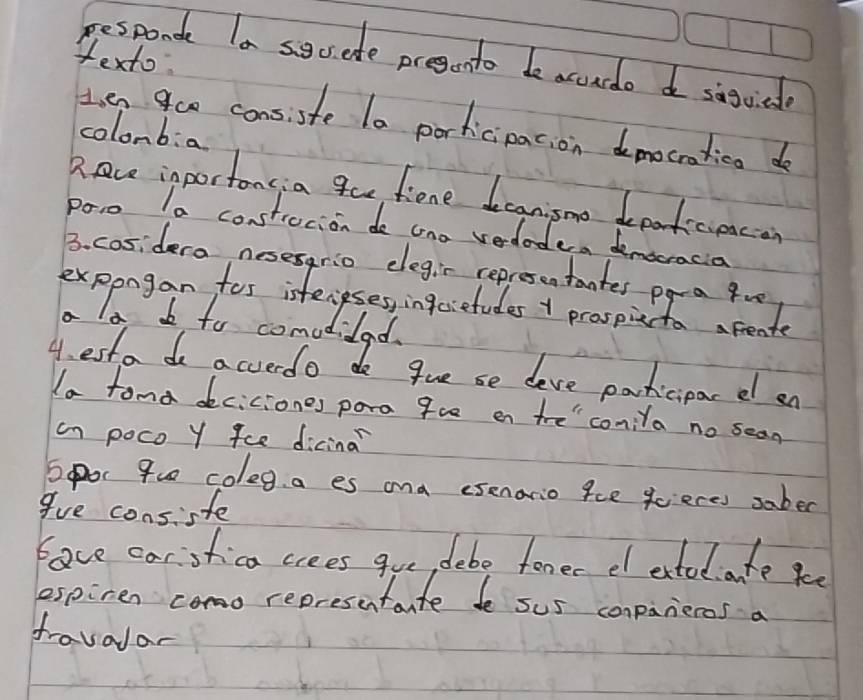 responde la siguiete pregunto de acuerdo d siguiede
texto:
1.en que consiste la participación democratica de
colombia.
2 Que inportancia que tiene decanismo departicipacion
para la constración de una verdodera democracia
3. cosidera nesesario elegir representantes para que
expongan tus isterieses, inquietudes y prospiecta afrente
a la de tu comudidad.
4. esta de acuerdo de que se deve participar el en
la toma deciciones para que en tre "conila no sean
un poco y que dicina"
5 por que colegia es una esenario que quieres saber
que consiste
6 Que caristica crees que debe tener el extudiante que
espiren como representante de sus conpañeros a
travajar